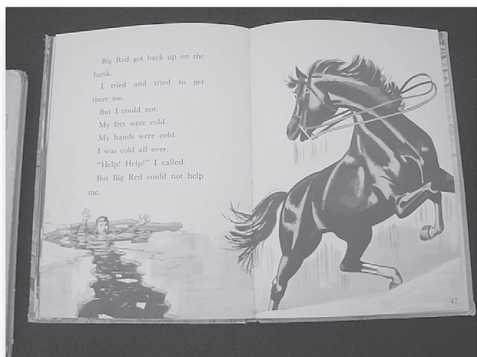 Big Red got back up on the
bank.
I tried and tried to get
there too.
But I could not.
My feet were cold.
My hands were cold.
I was cold all over.
"Help! Help!" I called.
But Big Red could not help
me.
47